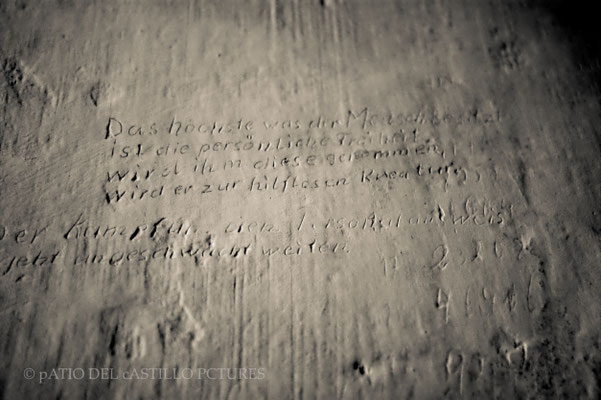 Das höchste was der Mensch besitzt
ist die persönliche Freiheit.
wird ihm diese genommen,
wird er zur hilflosen Kreatur,
Der Kampf um den Personalausweis
geht ungeschwächt weiter.
© pATIO DEL cASTILLO PCTURES